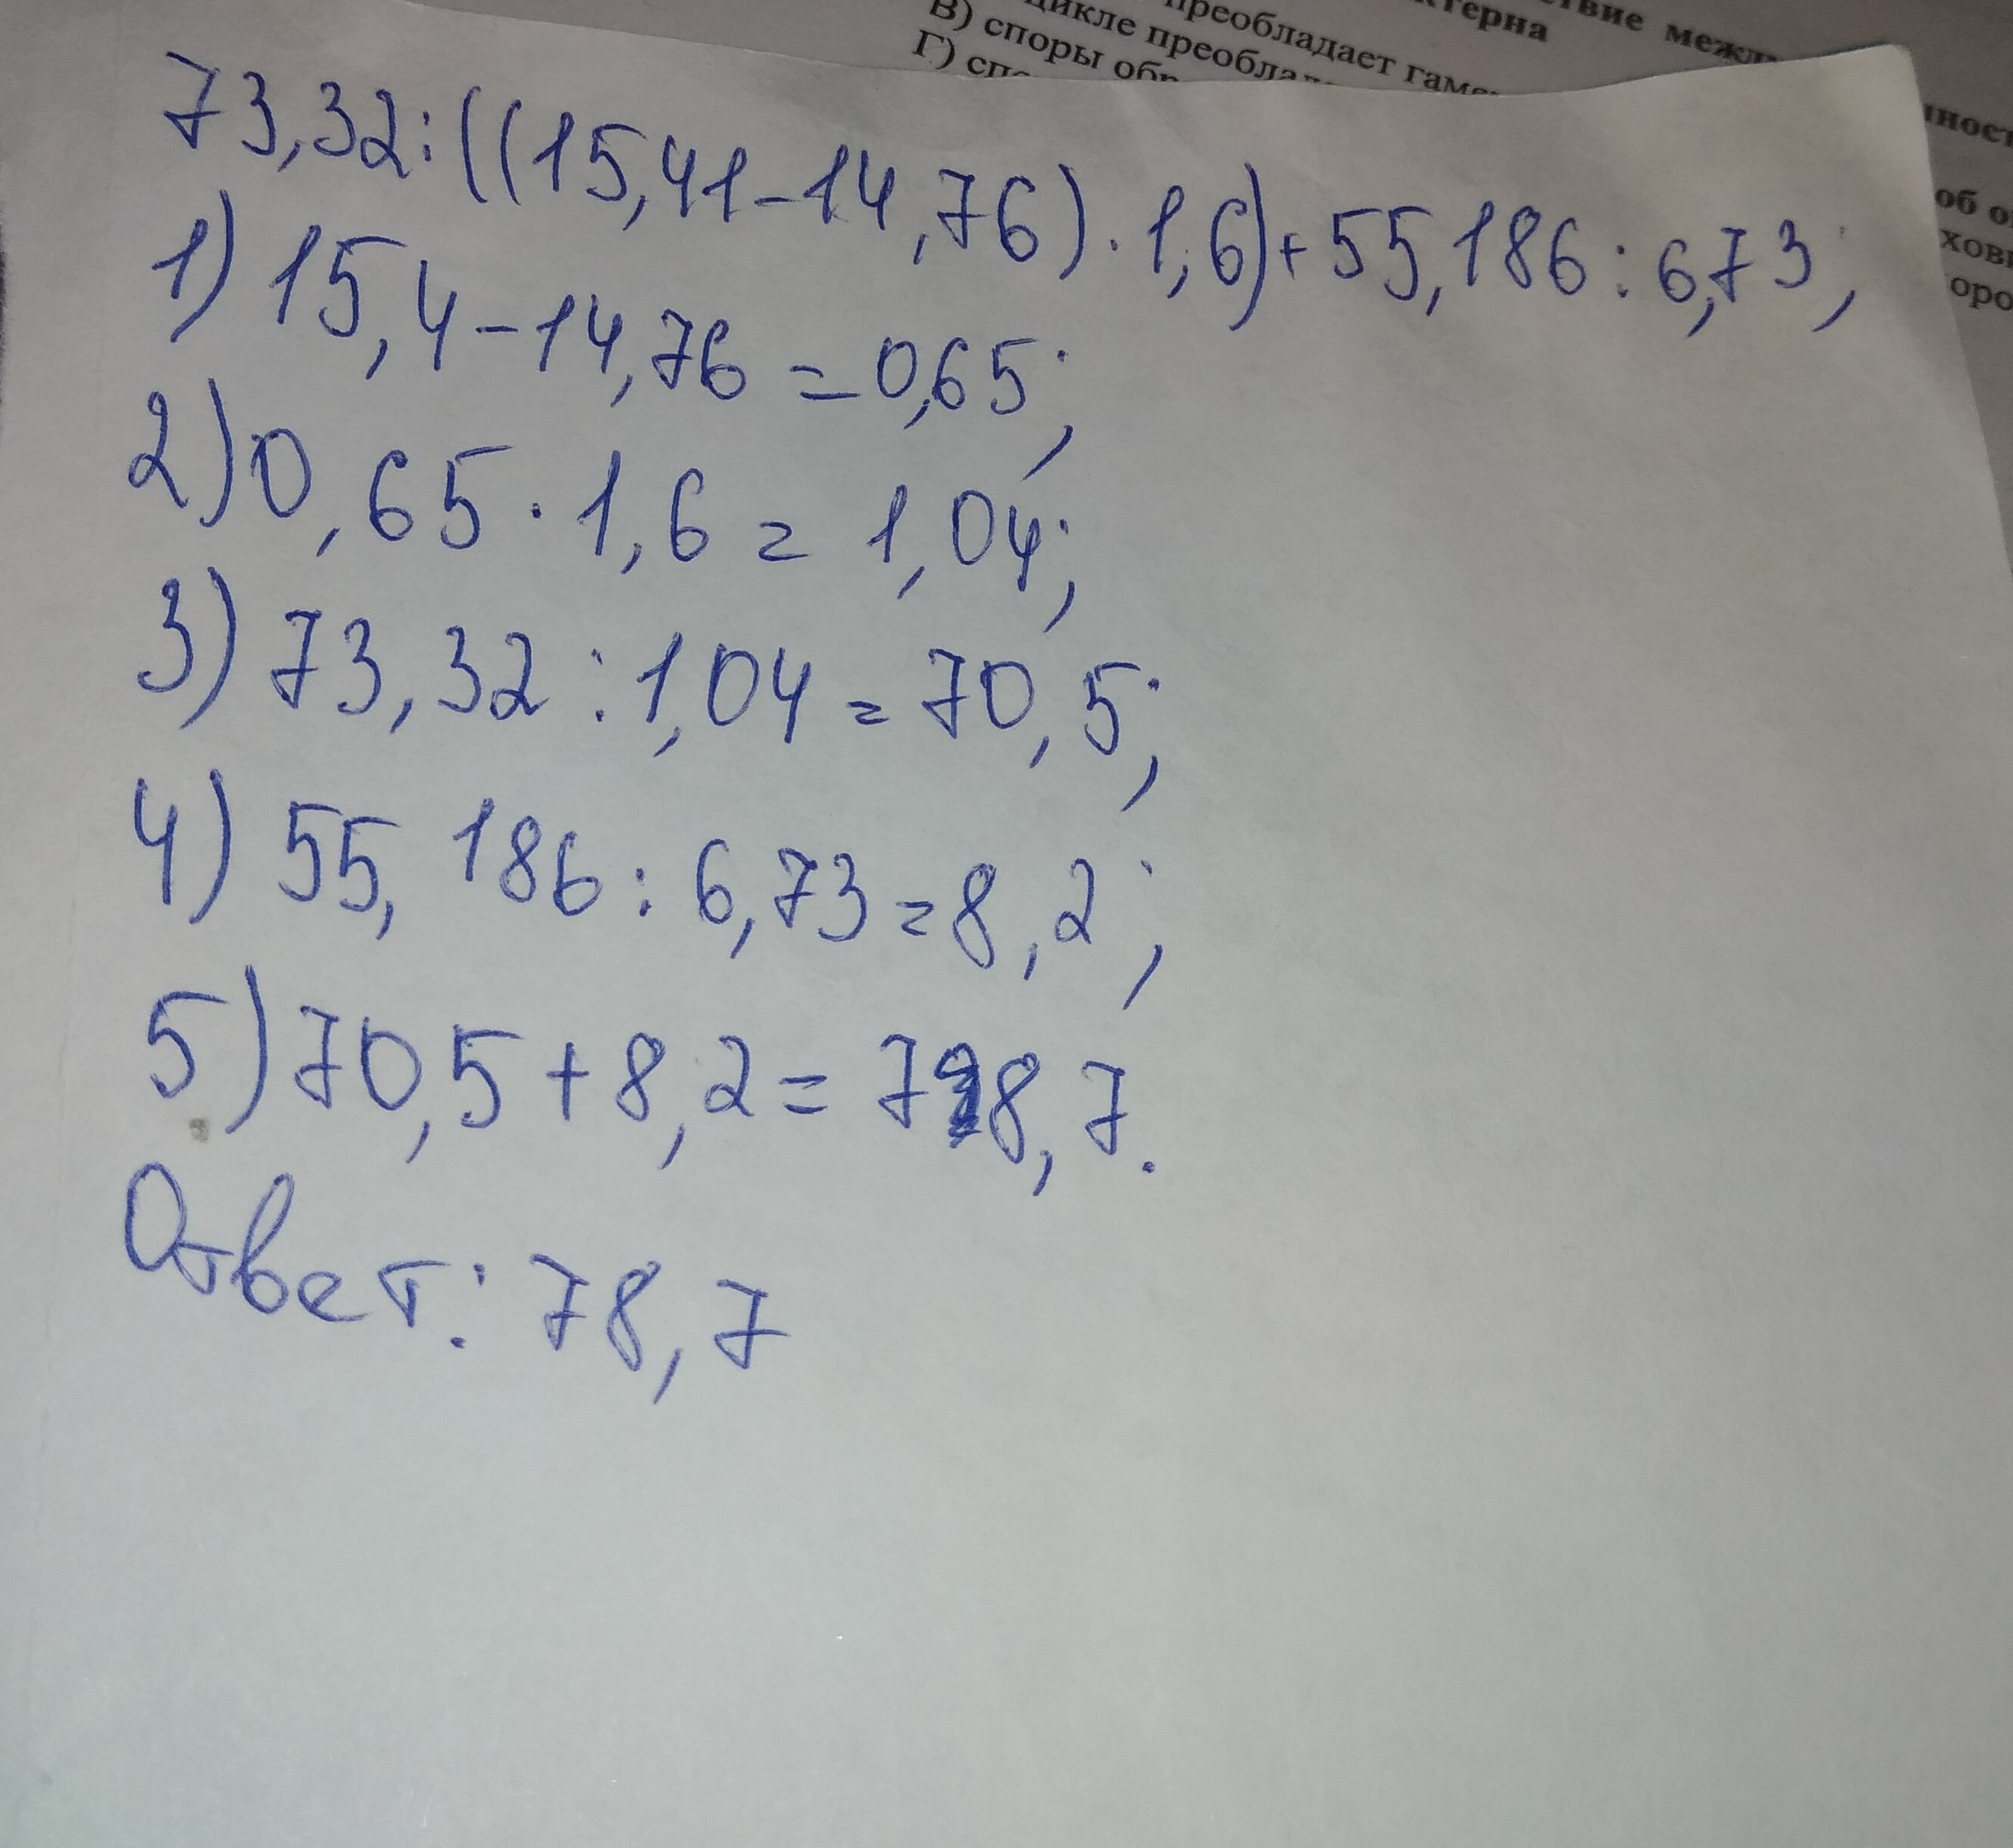 твие межд
ктерна
преобладает гаме
цикле преоблад
В) споры обр
Г) спо
ност
об о
хови
оро
73,32:((15,41-14,76)·1,6)+55,186:6,73;
1) 15,4-14,76=0,65;
2) 0,65·1,6=1,04;
3) 73,32:1,04=70,5;
4) 55,186:6,73=8,2;
5) 70,5+8,2=78,7.
Ответ: 78,7